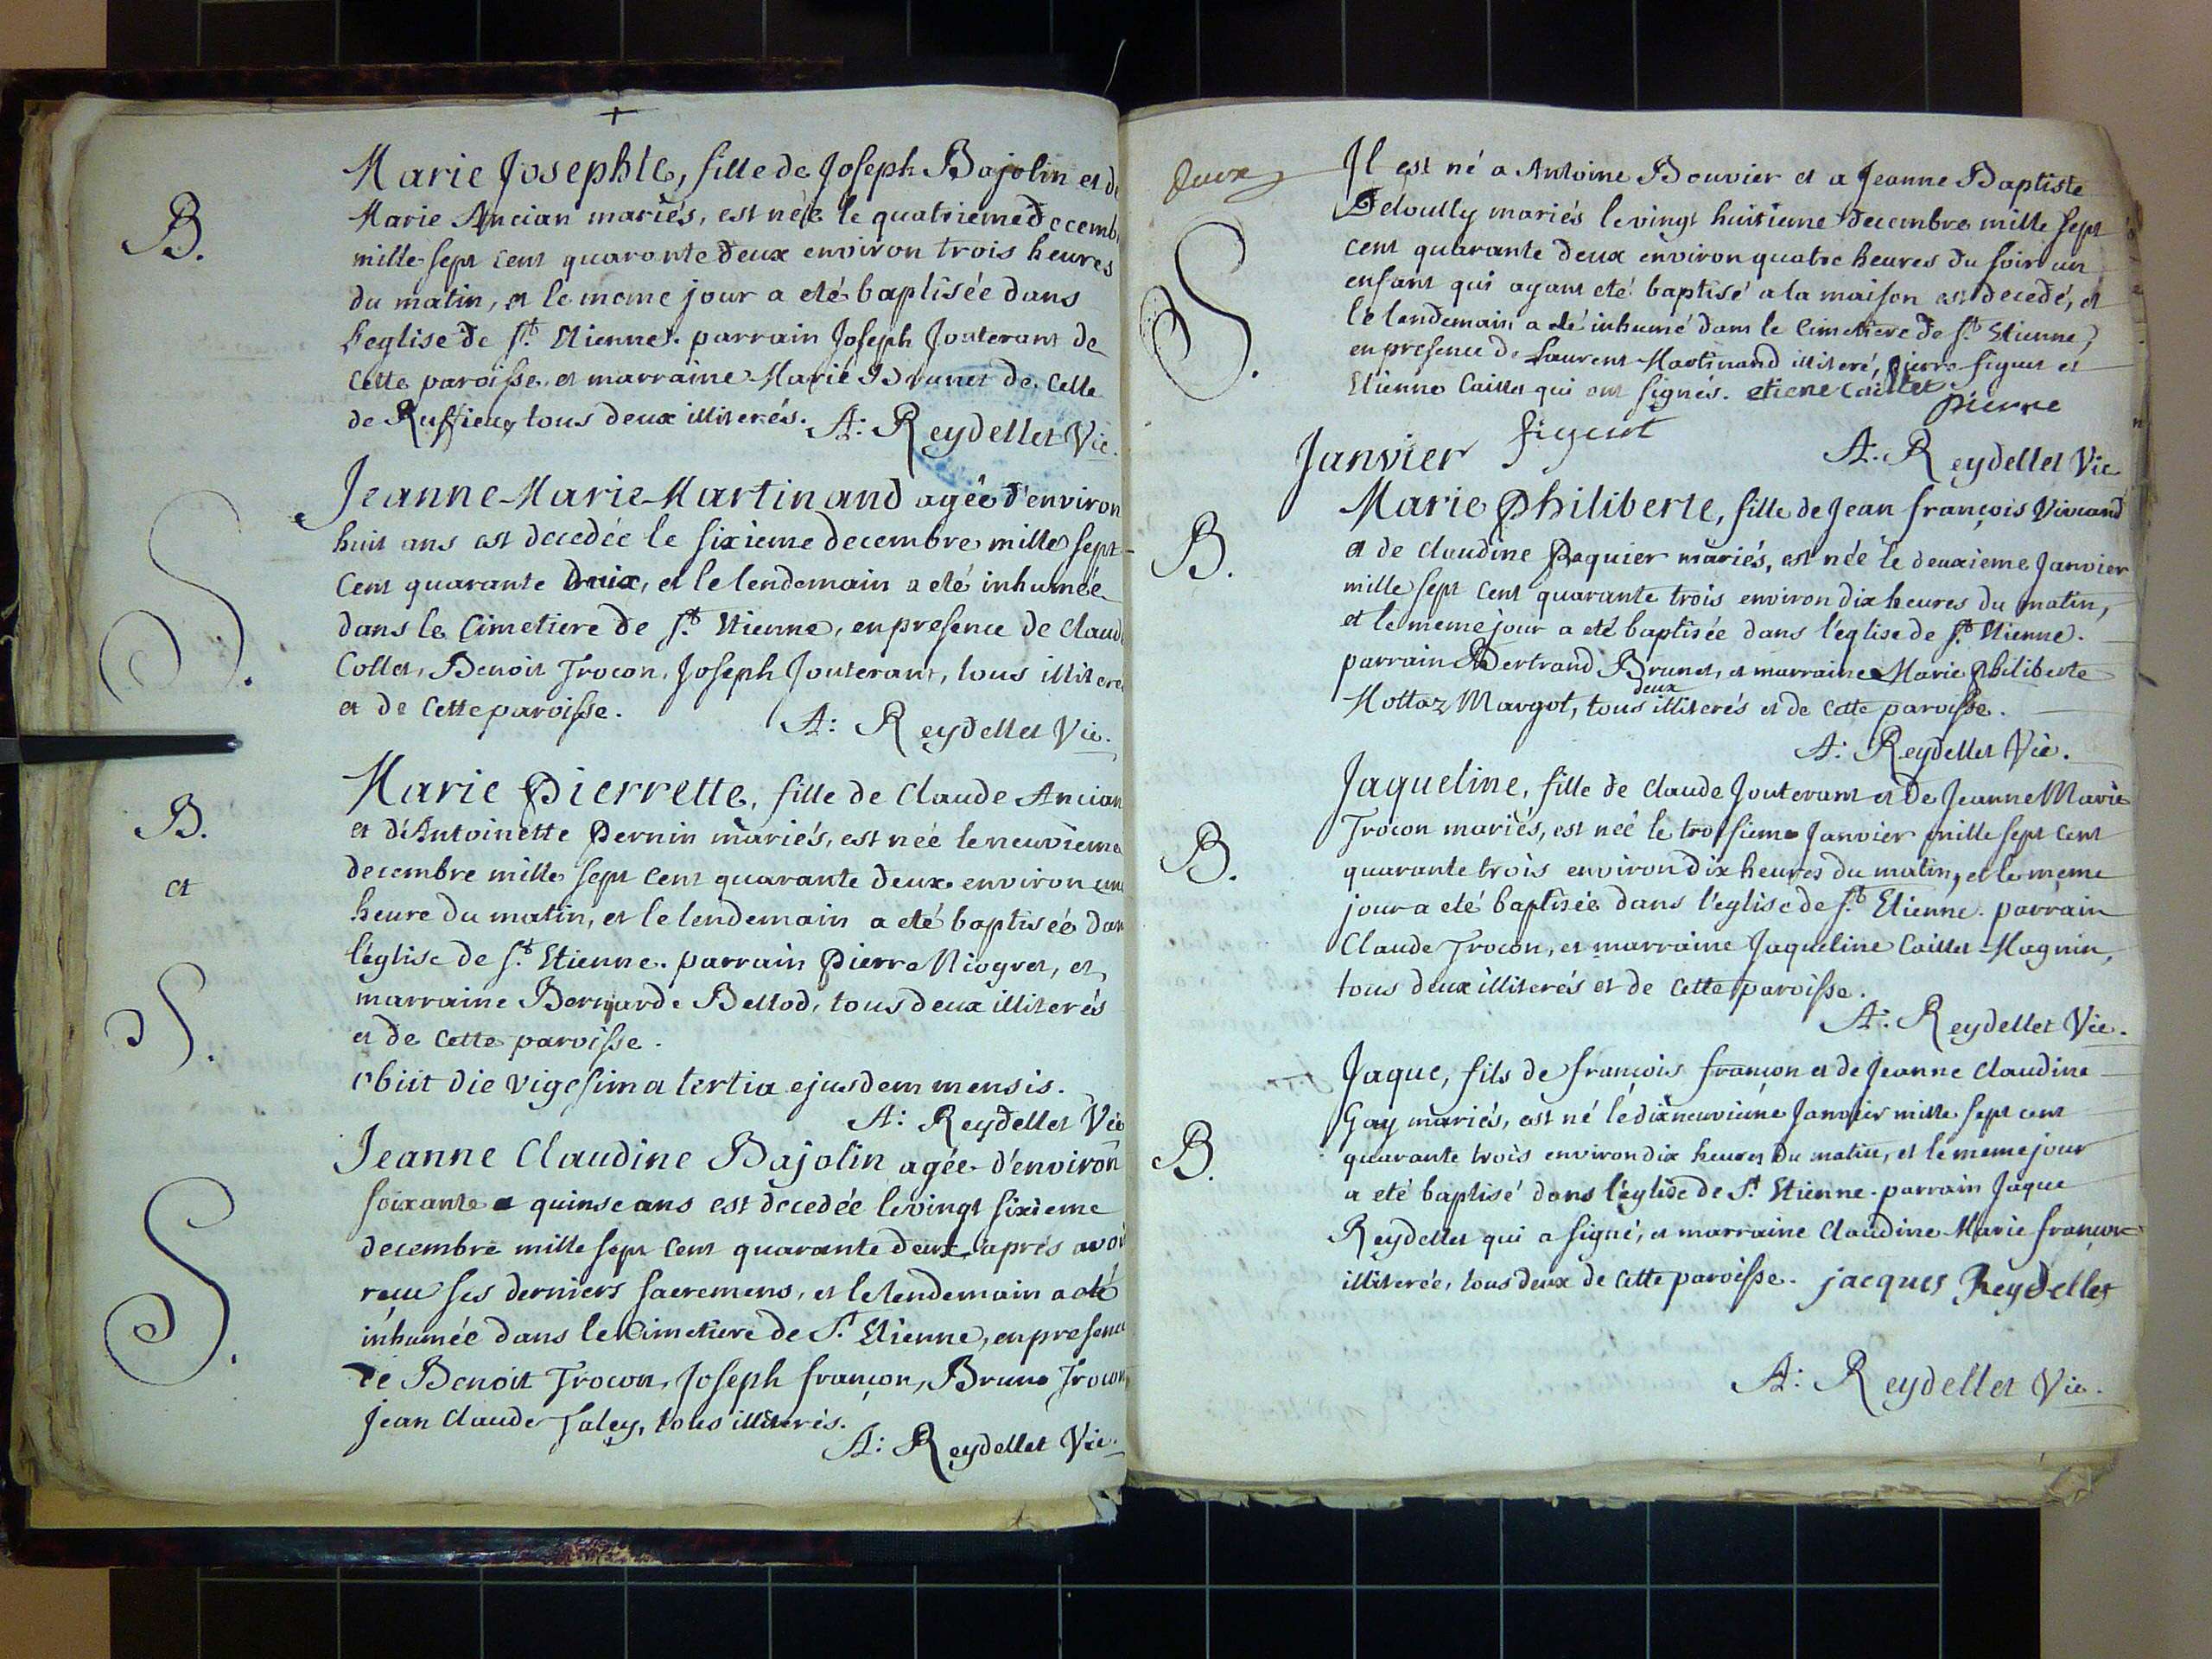 +
B.
Marie Josephte, fille de Joseph Bajolin et de
Marie Ancian mariés, est née le quatrieme Decemb
mille sept cent quarante deux environ trois heures
du matin, et le meme jour a eté baptisée dans
l'eglise de St. Etienne. parrain Joseph Jouterant de
cette paroisse. et marraine Marie Brunet de celle
de Ruffieu, tous deux illiterés. A: Reydellet Vic.
S.
Jeanne-Marie-Martinand agée d'environ
huit ans est decedée le sixieme decembre mille sept
cent quarante deux, et le lendemain a eté inhumée
dans le Cimetiere de St. Etienne, en presence de Claud
Collet, Benoit Trocon, Joseph Jouterant, tous illitere
et de cette paroisse. A: Reydellet Vic.
B.
et
S.
Marie Pierrette, fille de Claude Ancian
et d'Antoinette Pernin mariés, est née le neuvieme
decembre mille sept cent quarante deux environ une
heure du matin, et le lendemain a eté baptisée dan
l'église de St. Etienne. parrain Pierre Niogret, et
marraine Bernarde Bellod, tous deux illiterés
et de cette paroisse.
obiit die vigesima tertia ejusdem mensis.
A: Reydellet Vic
S.
Jeanne Claudine Bajolin agée d'environ
soixante quinse ans est decedée le vingt sixieme
decembre mille sept cent quarante deux, aprés avoi
reçu ses derniers sacremens, et le lendemain a eté
inhumée dans le Cimetiere de St. Etienne, en presence
de Benoit Trocon, Joseph françon, Bruno Trocon,
Jean Claude Taley, tous illiterés.
A: Reydellet Vic.
deux
S.
Il est né a Antoine Bouvier et a Jeanne Baptiste
Deloully mariés le vingt huitieme decembre mille sept
cent quarante deux environ quatre heures du soir un
enfant qui ayant eté baptisé a la maison est decedé, et
le lendemain a eté inhumé dans le Cimetiere de St. Etienne,
en presence de Laurent Martinand illiteré, Pierre figuet et
Etienne Caillet qui ont signés. etiene caillet
pierre
figuet
A. Reydellet Vic
Janvier
B.
Marie Philiberte, fille de Jean françois Viviand
et de Claudine Paquier mariés, est née le deuxieme Janvier
mille sept cent quarante trois environ dix heures du matin,
et le meme jour a eté baptisée dans l'église de St. Etienne.
parrain Bertrand Brunet, et marraine Marie Philiberte
deux
Mottaz Margot, tous illiterés et de cette paroisse.
A: Reydellet Vic.
B.
Jaqueline, fille de Claude Jouterant et de Jeanne Marie
Trocon mariés, est née le troisieme Janvier mille sept cent
quarante trois environ dix heures du matin, et le meme
jour a eté baptisée dans l'eglise de St. Etienne. parrain
Claude Trocon, et marraine Jaqueline Caillet-Magnin,
tous deux illiterés et de cette paroisse.
A: Reydellet Vic.
B.
Jaque, fils de françois françon et de Jeanne Claudine
Gay mariés, est né le dixneuvieme Janvier mille sept cent
quarante trois environ dix heures du matin, et le meme jour
a eté baptisé dans l'église de St. Etienne. parrain Jaque
Reydellet qui a signé, et marraine Claudine Marie françon
illiterée, tous deux de cette paroisse. jacques Reydellet
A: Reydellet Vic.